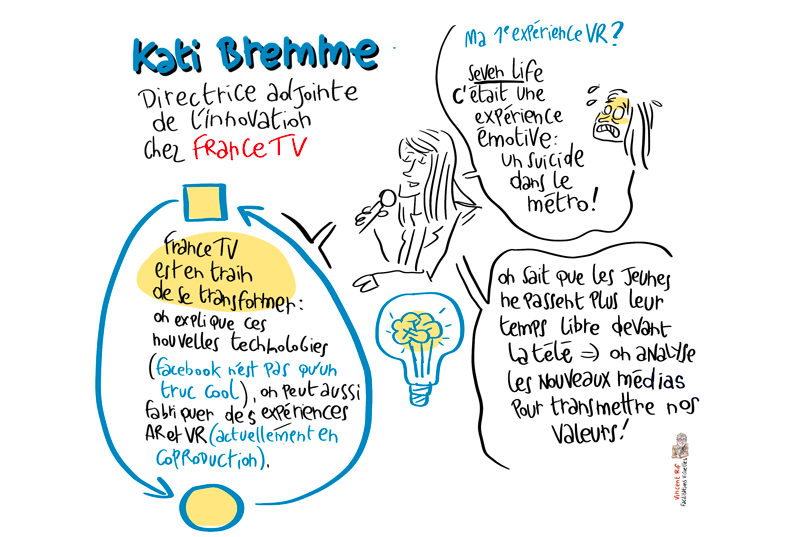 Kati Bremme
Directrice adjointe
de l'innovation
chez FRANCE TV
Ma 1e expérience VR?
Seven Life
c'était une
expérience
émotive:
un suicide
dans le
métro!
France TV
est en train
de se transformer:
on explique ces
nouvelles technologies
(facebook n'est pas qu'un
truc cool), on peut aussi
fabriquer des expériences
AR et VR (actuellement en
coproduction).
on sait que les jeunes
ne passent plus leur
temps libre devant
la télé => on analyse
les nouveaux médias
pour transmettre nos
valeurs!
Vincent Rif
Facilitations visuelles